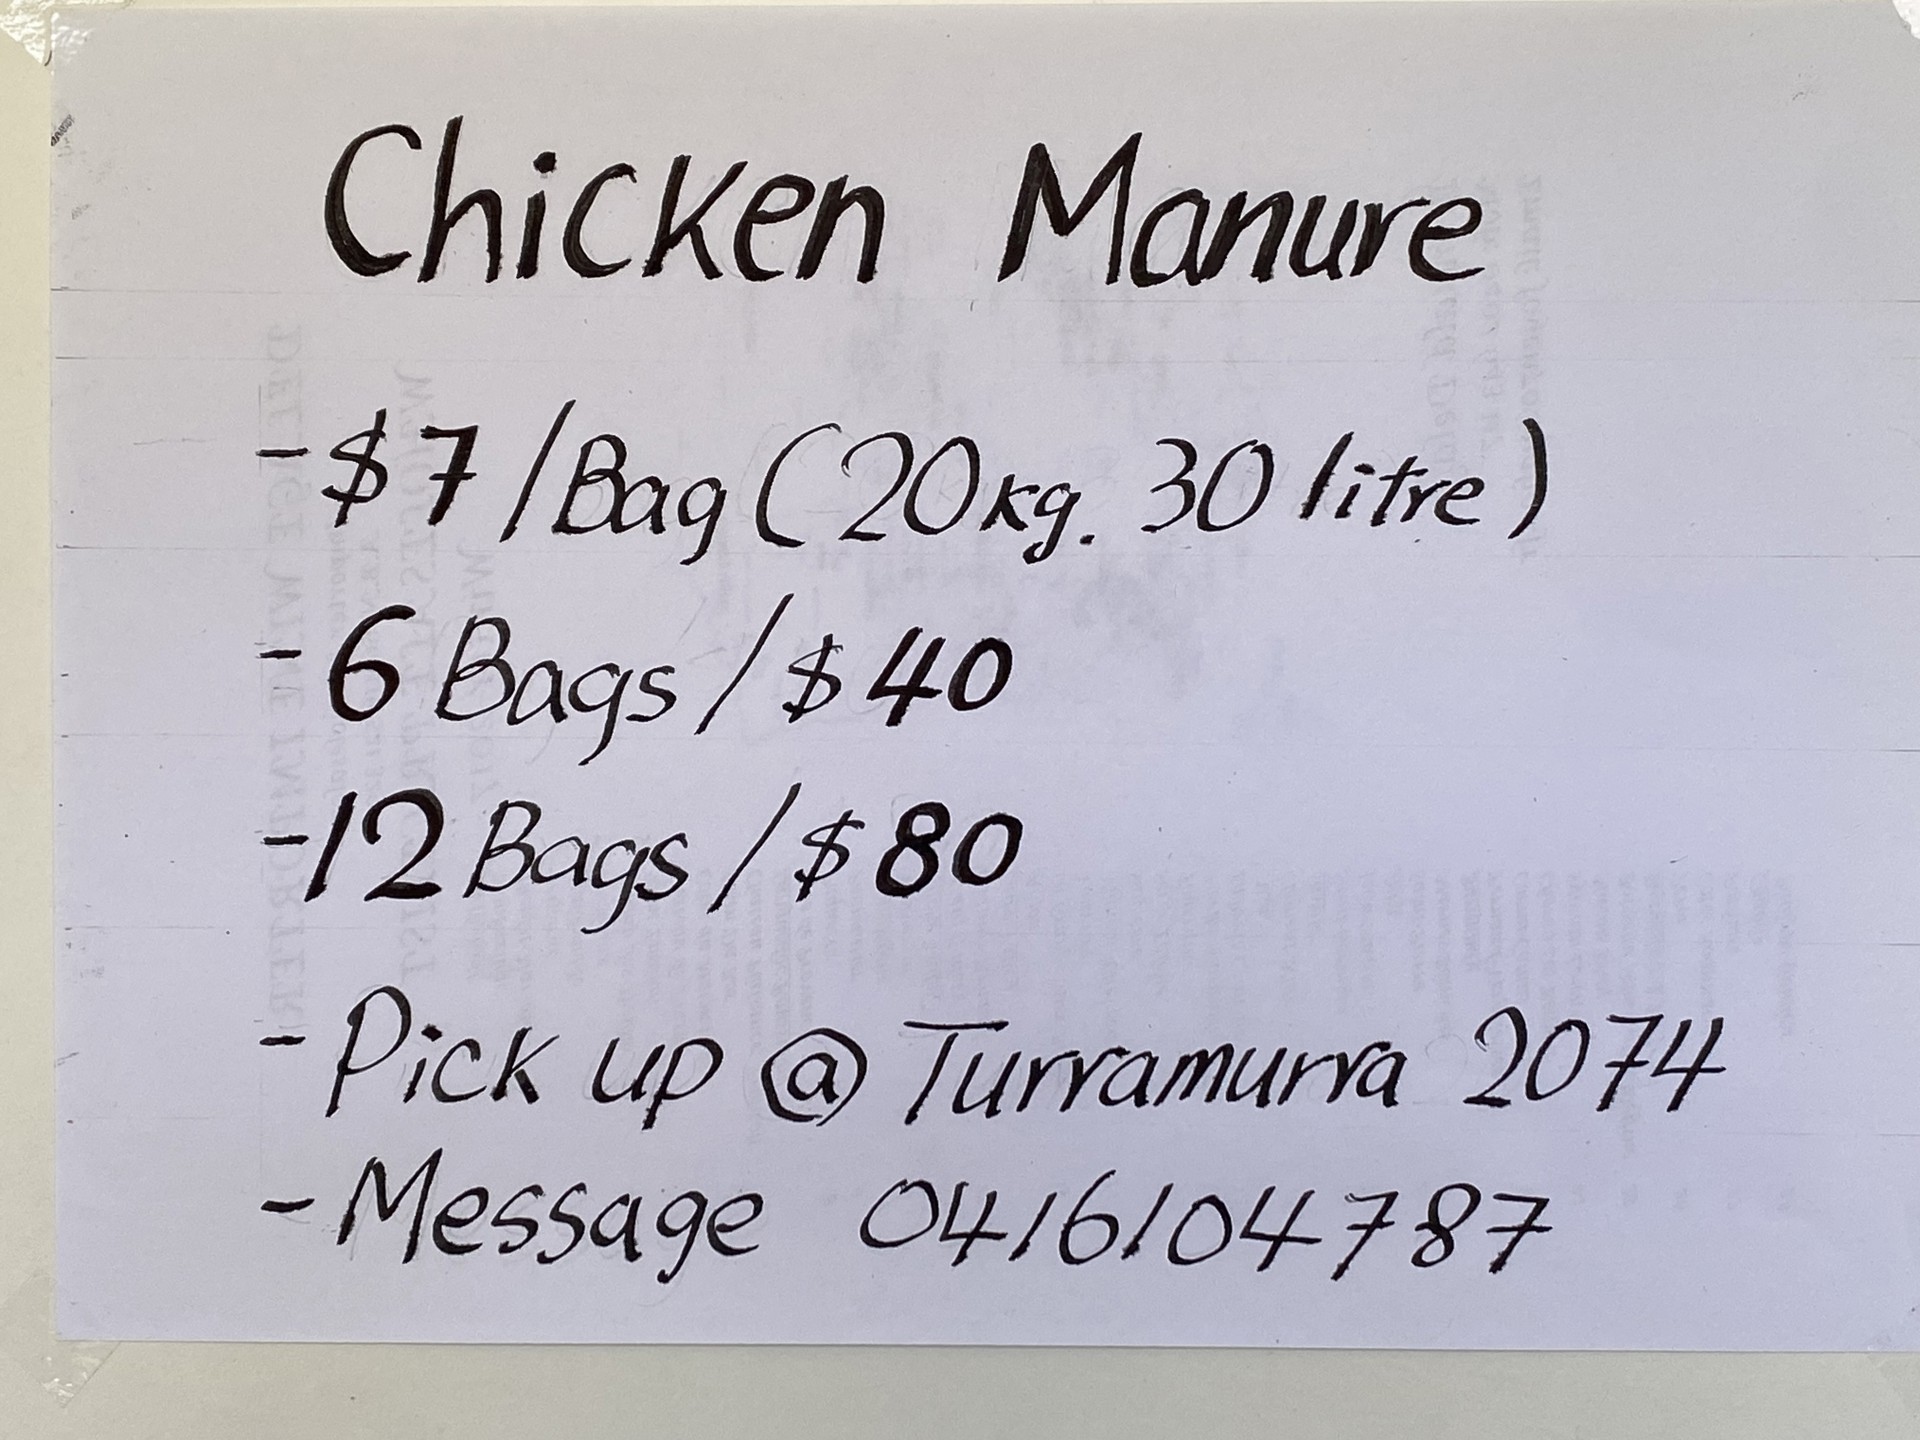 Chicken Manure
- $7/Bag (20kg. 30 litre)
- 6 Bags / $40
- 12 Bags / $80
- Pick up @ Turramurra 2074
- Message 0416104787